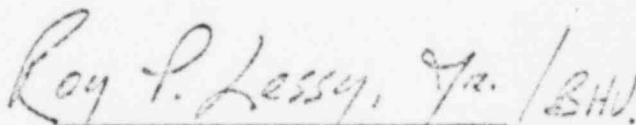 Roy P. Lessy, Jr. /BHV